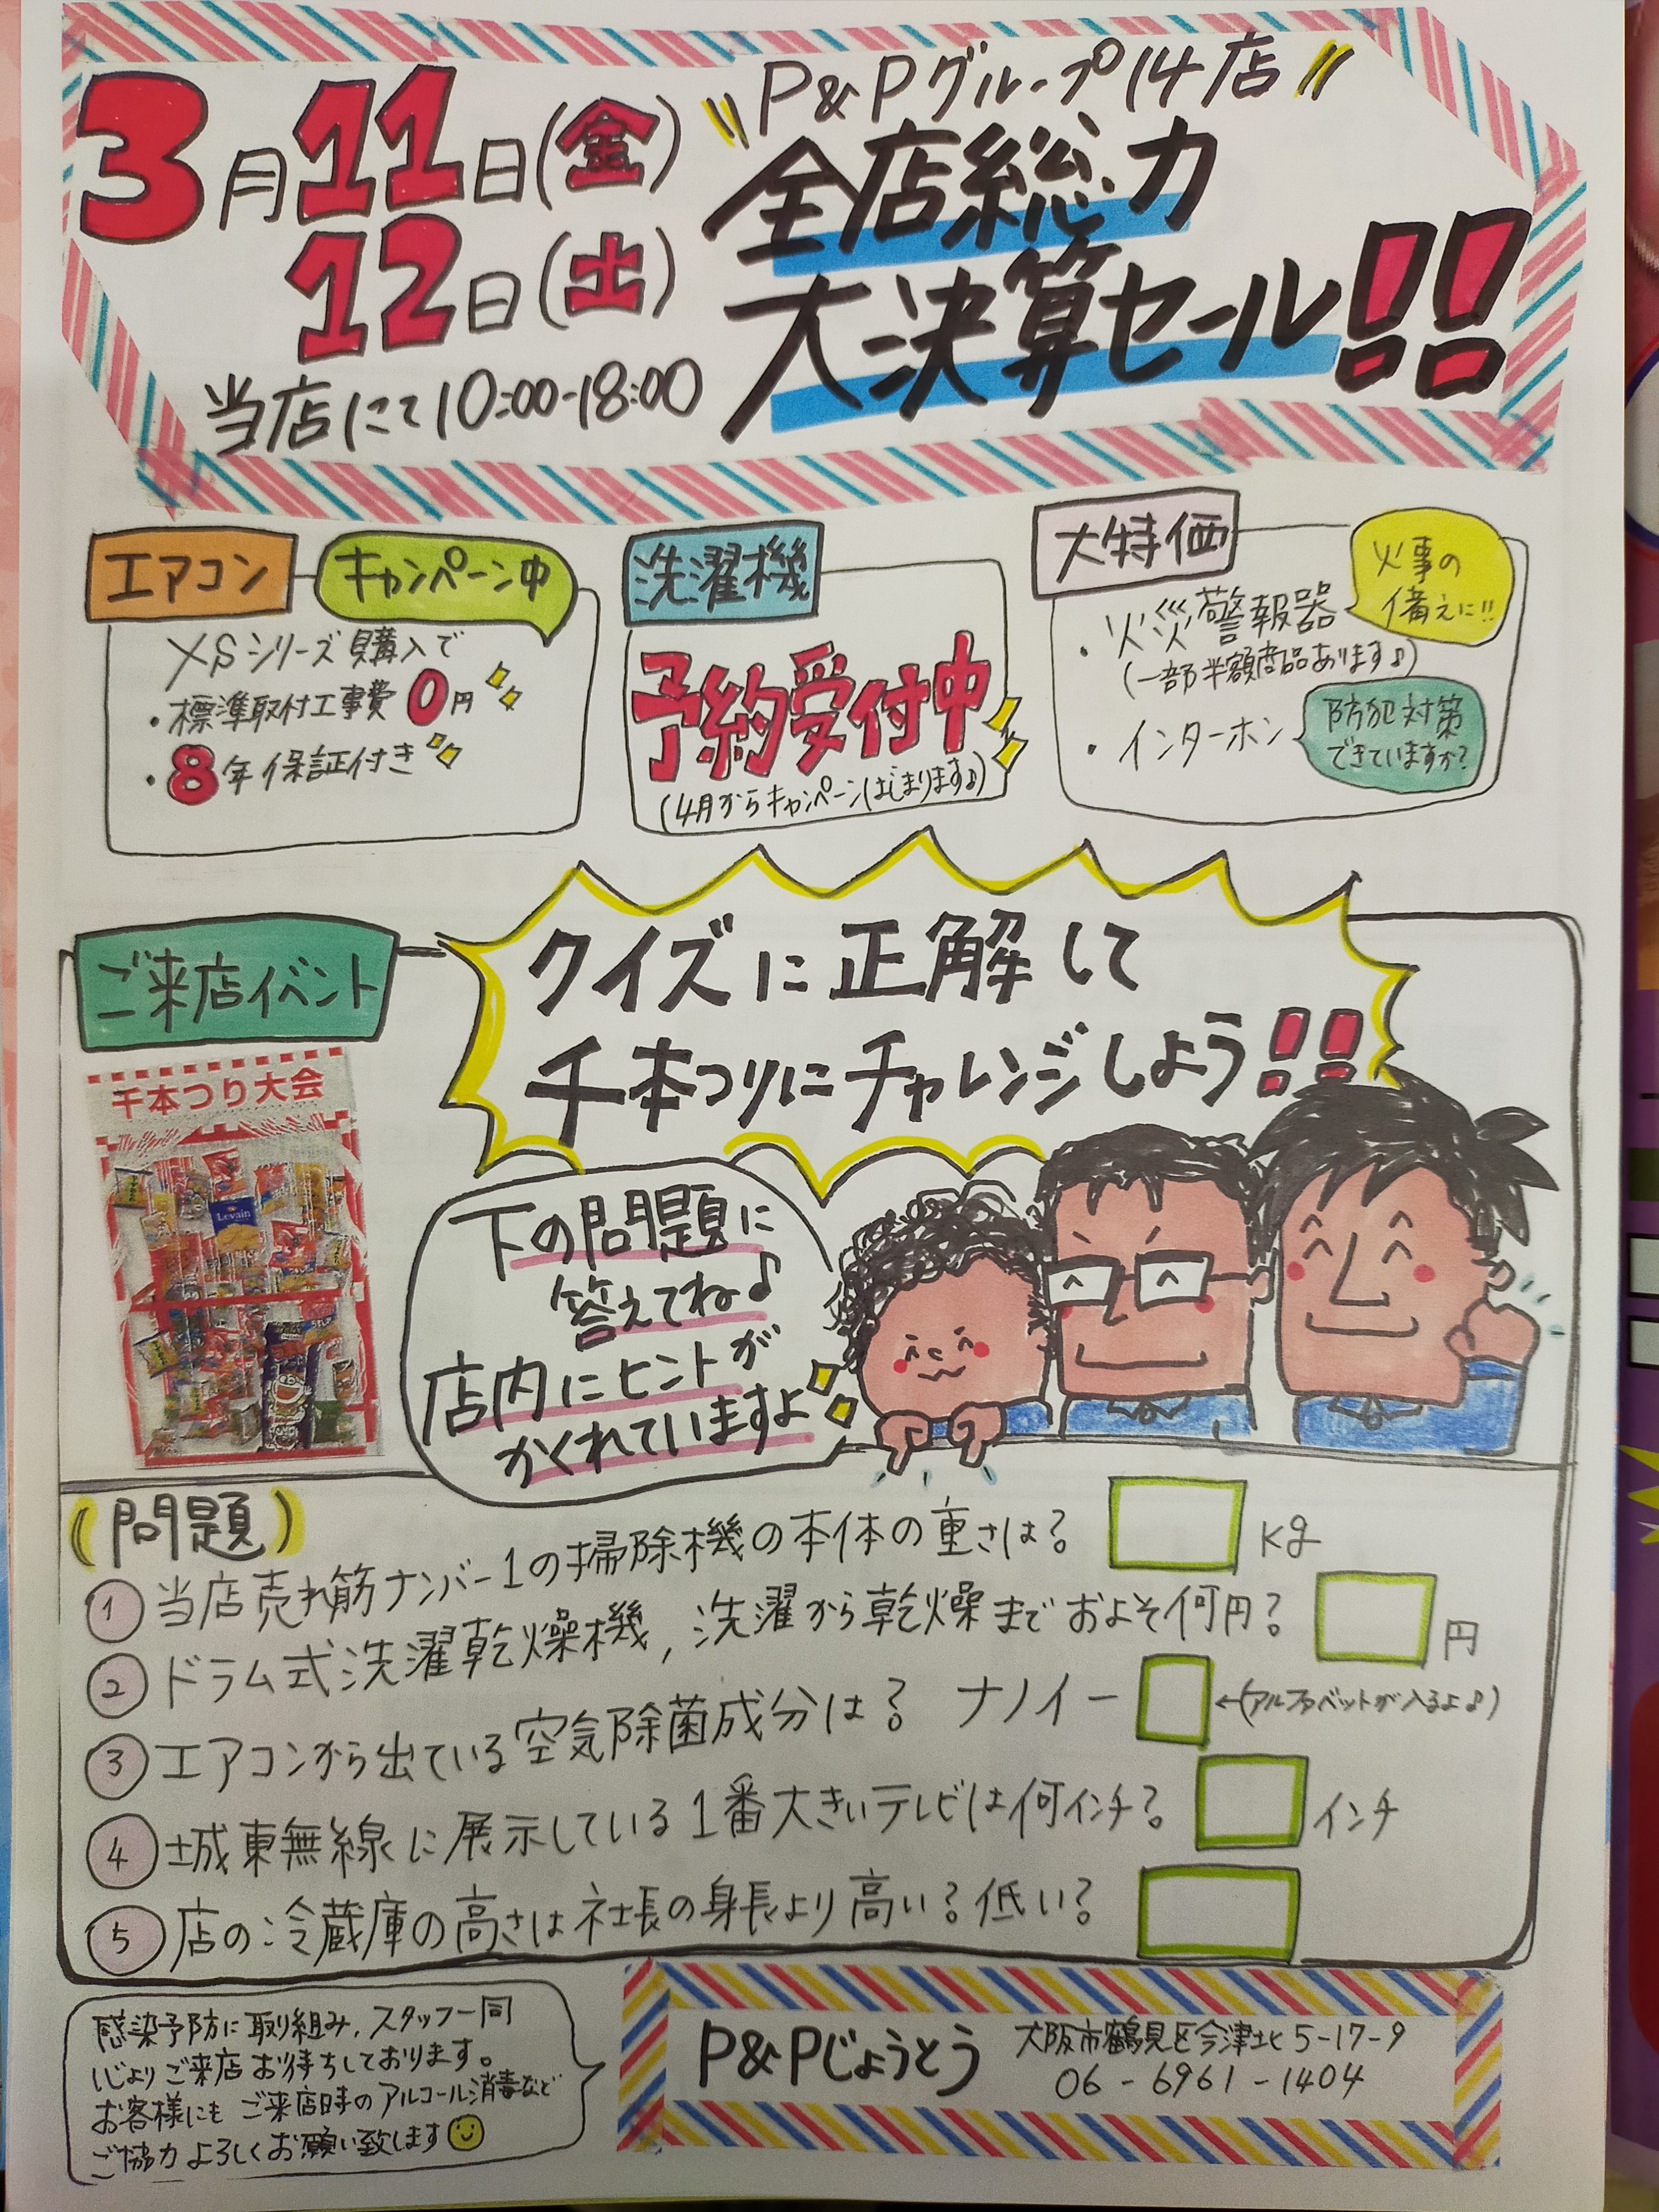 3月11日(金)
12日(土)
当店にて10:00-18:00
P&Pグループ14店
全店総力
大決算セール!!
エアコン
キャンペーン中
XSシリーズ購入で
・標準取付工事費0円
・8年保証付き
洗濯機
予約受付中
(4月からキャンペーンはじまります♪)
大特価
火事の
備えに!!
・火災警報器
(一部半額商品あります♪)
・インターホン
防犯対策
できていますか?
ご来店イベント
クイズに正解して
千本つりにチャレンジしよう!!
千本つり大会
Levain
下の問題に
答えてね♪
店内にヒントが
かくれていますよ
(問題)
① 当店売れ筋ナンバー1の掃除機の本体の重さは? kg
② ドラム式洗濯乾燥機、洗濯から乾燥までおよそ何円? 円
③ エアコンから出ている空気除菌成分は? ナノイー ←(アルファベットが入るよ♪)
④ 城東無線に展示している1番大きいテレビは何インチ? インチ
⑤ 店の冷蔵庫の高さは社長の身長より高い?低い?
感染予防に取り組み、スタッフ一同
心よりご来店お待ちしております。
お客様にもご来店時のアルコール消毒など
ご協力よろしくお願い致します
P&Pじょうとう
大阪市鶴見区今津北5-17-9
06-6961-1404